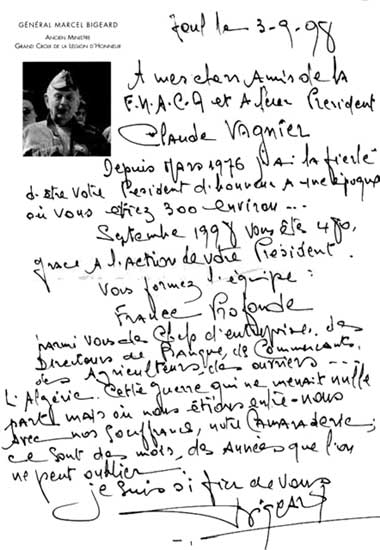 GÉNÉRAL MARCEL BIGEARD
ANCIEN MINISTRE
GRAND CROIX DE LA LÉGION D'HONNEUR
Toul le 3-9-98
A mes chers Amis de la
F.N.A.C.A et à leur President
Claude VAGNIER
Depuis Mars 1976 j'ai la fierté
d'être votre President d'honneur A une époque
où vous étiez 300 environ...
Septembre 1998 vous êtes 480,
grace à l'action de votre Président.
Vous formez l'équipe :
France Profonde
parmi vous des Chefs d'entreprise, des
Directeurs de Banque, de Commercants,
des Agriculteurs, des ouvriers ....
L'Algérie. Cette guerre qui ne menait nulle
part mais où nous étions entre-nous
Avec nos Souffrances, notre Camaraderie;
ce sont des mois, des Années que l'on
ne peut oublier
je suis si fier de vous
Bigeard